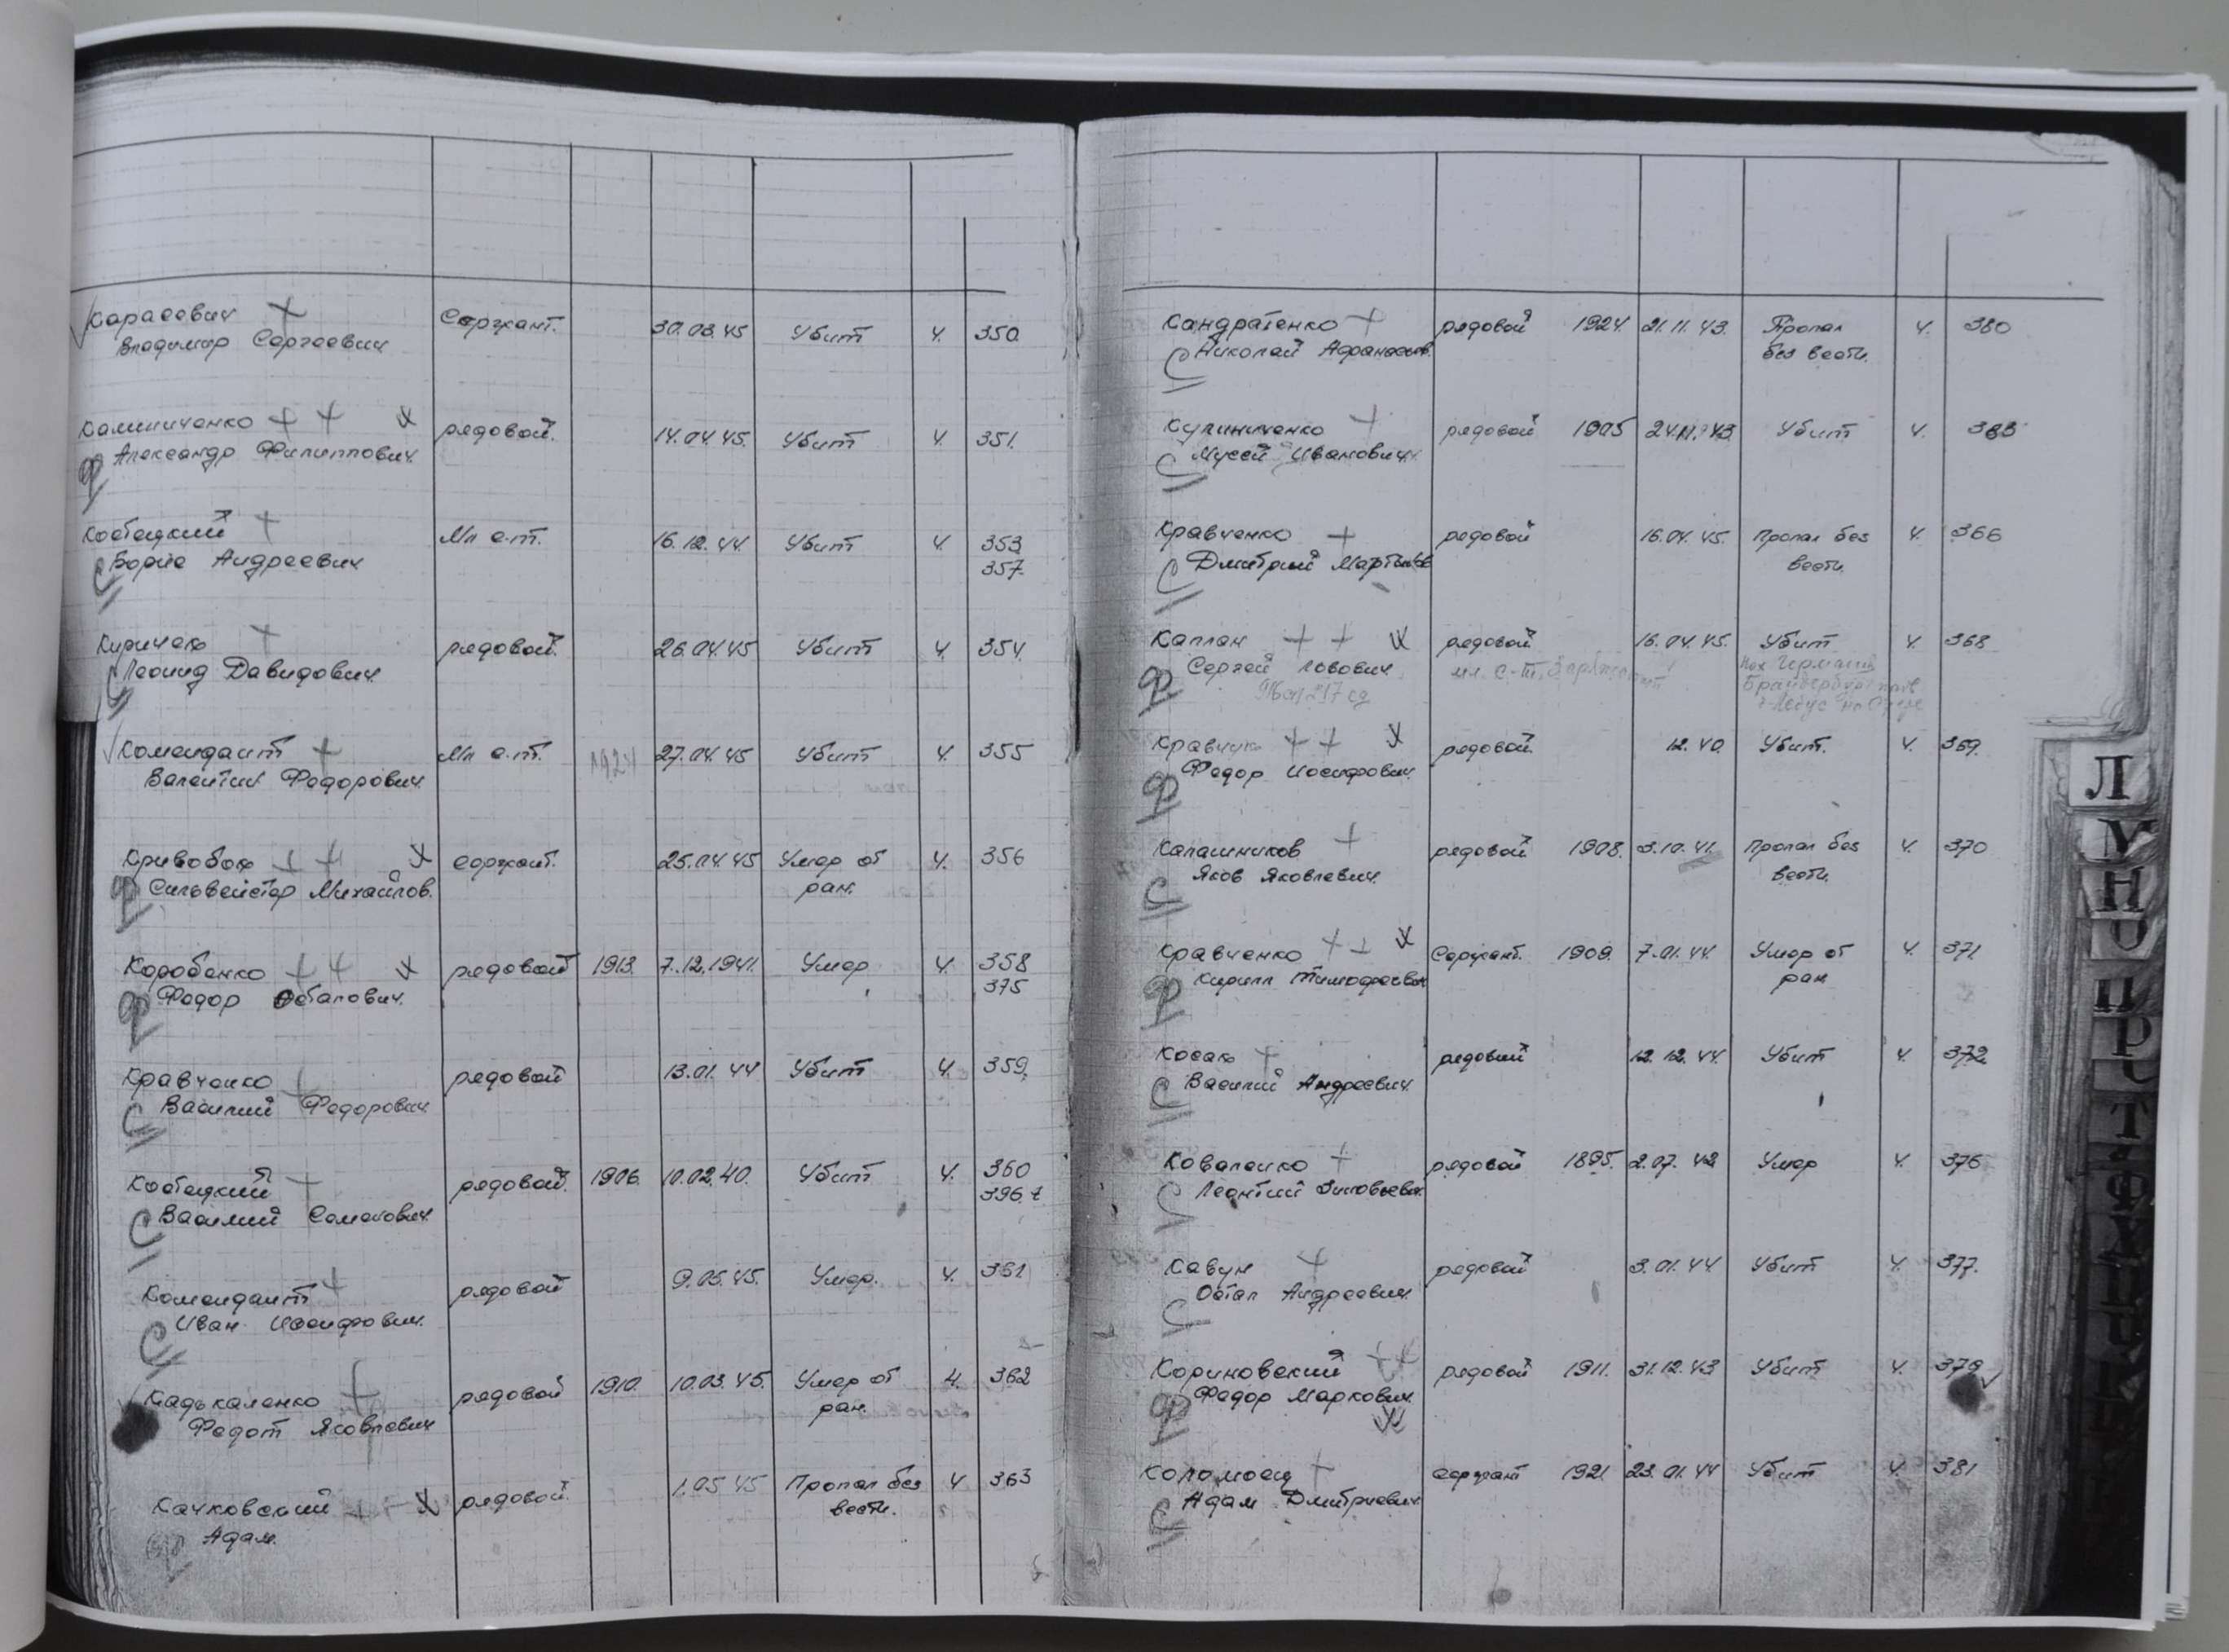 Карасевич Сержант. 30.03.45 Убит 4. 350
Владимир Сергеевич
Калиниченко рядовой. 14.04.45. Убит 4. 351.
Александр Филиппович
Костецкий Мл с-т. 16.12.44. Убит 4. 353
Борис Андреевич 357.
Киричек рядовой. 26.04.45 Убит 4. 354.
Леонид Давидович
Комендант Мл с-т. 1924 27.04.45 Убит 4. 355
Валентин Федорович
Кривобок сержант. 25.04.45 Умер от 4. 356
Сильвейстер Михайлов. ран.
Коробенко рядовой 1913. 7.12.1941. Умер 4. 358
Федор Остапович. 375
Кравченко рядовой 13.01.44 Убит 4. 359.
Василий Федорович
Костецкий рядовой. 1906. 10.02.40. Убит 4. 360
Василий Семенович 396.
Комендант рядовой 9.05.45. Умер. 4. 361
Иван Иосифович.
Кадькаленко рядовой 1910. 10.03.45. Умер от 4. 362
Федот Яковлевич ран.
Качковский рядовой. 1.05 45 Пропал без 4 363
Адам. вести.
Кандратенко рядовой 1924. 21.11.43. Пропал 4. 380
Николай Афанасьев. без вести.
рядовой 1905 Убит 4.
Мусей Иванович.
Кравченко рядовой 16.04.45. Пропал без 4. 366
Дмитрий вести.
Каплан рядовой 16.04.45. Убит 4. 368
Сергей Лвович мл. с-т.
Кравчук рядовой. 12.40. Убит. 4. 369.
Федор Иосифович
Калашников рядовой 1908. 3.10.41. Пропал без 4. 370
Яков Яковлевич. вести.
Кравченко Сержант. 1909. 7.01.44. Умер от 4. 371
Кирилл Тимофеевич ран
Косак рядовий 12.12.44. Убит 4. 372
Василий Андреевич
Коваленко рядовой 1895. 2.07.42 Умер 4. 376
Леонтий Зиновьевич.
Кавун рядовой 3.01.44 Убит 4. 377.
Остап Андреевич
Кориновский рядовой 1911. 31.12.43 Убит 4. 379
Федор Маркович.
Коломоец сержант 1921 23.01.44 Убит 4. 381
Адам Дмитриевич
Л
У
Н
О
П
Р
Т